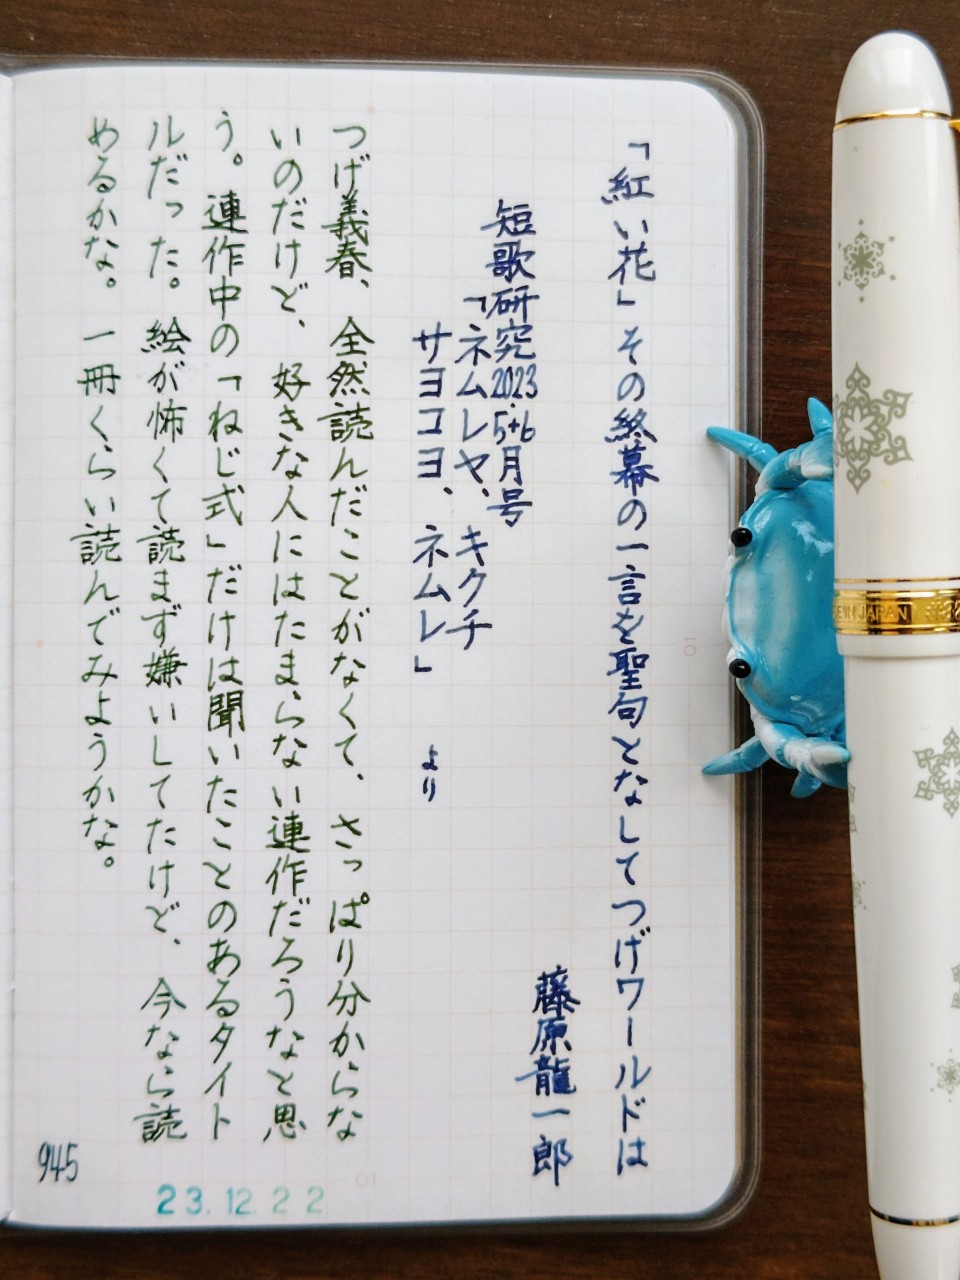 「紅い花」その終幕の一言を聖句となしてつげワールドは
藤原龍一郎
短歌研究2023.5+6月号
「ネムレヤ、キクチ
サヨコヨ、ネムレ」より
つげ義春、全然読んだことがなくて、さっぱり分からな
いのだけど、好きな人にはたまらない連作だろうなと思
う。連作中の「ねじ式」だけは聞いたことのあるタイト
ルだった。絵が怖くて読まず嫌いしてたけど、今なら読
めるかな。一冊くらい読んでみようかな。
945
23.12.22
10
10
IN JAPAN